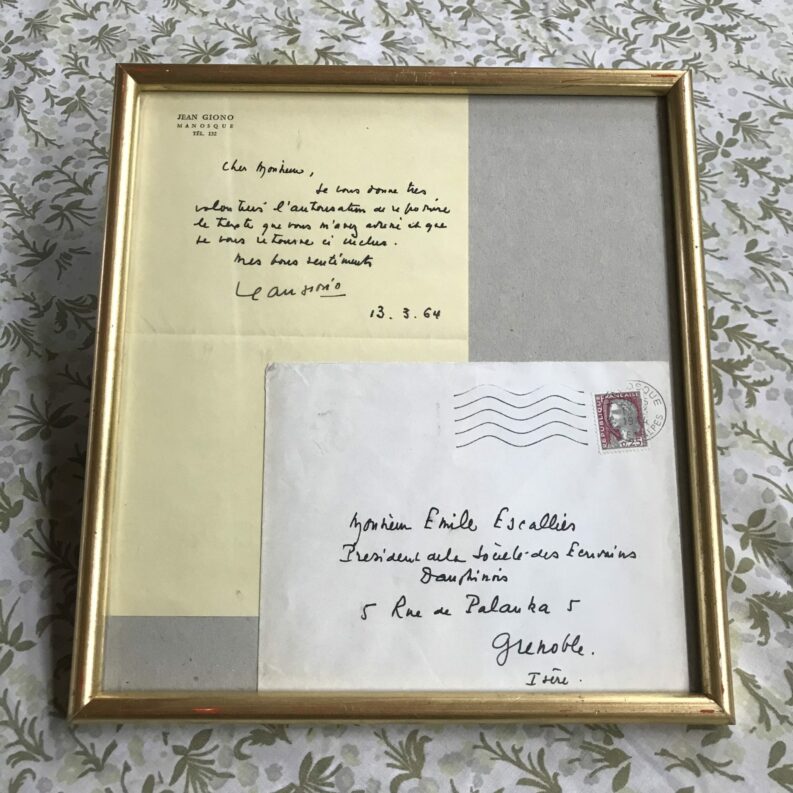 JEAN GIONO
MANOSQUE
TÉL. 132
Cher Monsieur,
Je vous donne très
volontiers l'autorisation de
le texte que vous m'avez adressé et que
je vous retourne ci inclus.
Mes bons sentiments
Jean Giono
13.3.64
REPUBLIQUE FRANÇAISE
0,25
OSQUE
ALPES
Monsieur Emile Escallier
President de la Société des Ecrivains
Dauphinois
5 Rue de Palanka 5
Grenoble.
Isère.